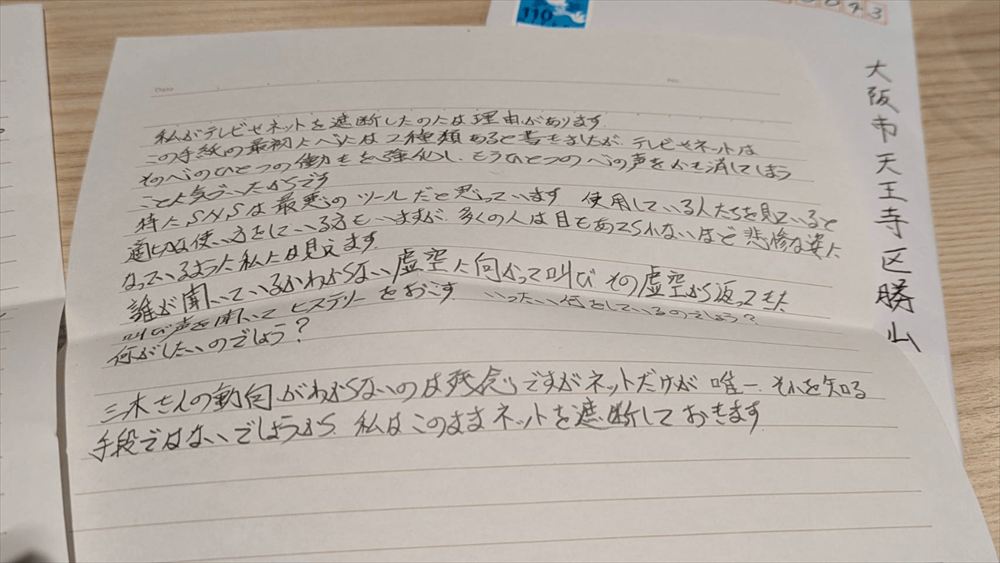 Date
No.
私がテレビやネットを遮断したのには理由があります
この手紙の最初に心には2種類あると書きましたが、テレビやネットは
その心のひとつの働きを強化し、もうひとつの心の声をかき消してしまう
ことに気づいたからです
特にSNSは最悪のツールだと思っています 使用している人たちを見ていると
適切な使い方をしている方もいますが、多くの人は目もあてられないほど悲惨な姿に
なっているように私には見えます.
誰が聞いているかわからない虚空に向かって叫び その虚空から返ってきた
叫び声を聞いてヒステリーをおこす いったい何をしているのでしょう?
何がしたいのでしょう?
三木さんの動向がわからないのは残念ですがネットだけが唯一、それを知る
手段ではないでしょうから、私はこのままネットを遮断しておきます
110
大阪市天王寺区勝山